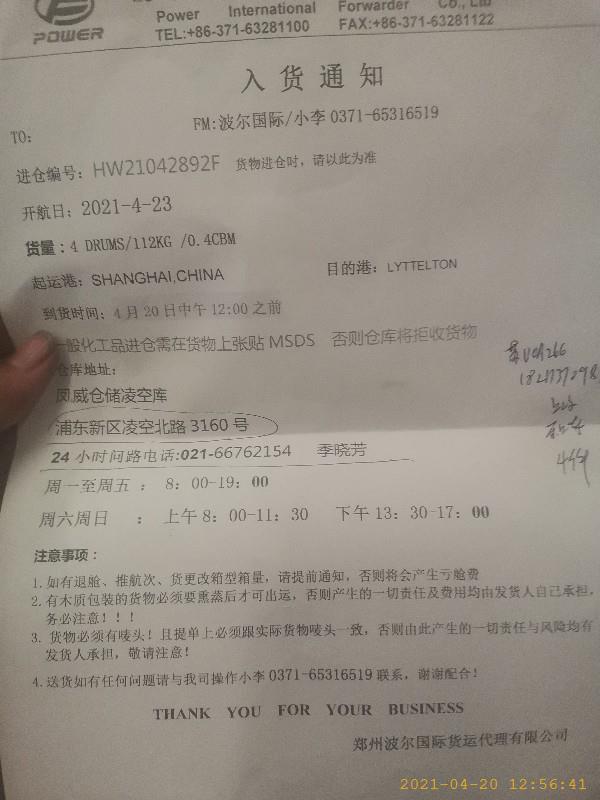 Power International Forwarder Co., Ltd
POWER
TEL:+86-371-63281100 FAX:+86-371-63281122
入 货 通 知
TO: FM:波尔国际/小李 0371-65316519
进仓编号: HW21042892F 货物进仓时，请以此为准
开航日: 2021-4-23
货量: 4 DRUMS/112KG /0.4CBM
起运港: SHANGHAI,CHINA 目的港: LYTTELTON
到货时间: 4 月 20 日中午 12:00 之前
一般化工品进仓需在货物上张贴 MSDS 否则仓库将拒收货物
仓库地址:
凤威仓储凌空库
浦东新区凌空北路 3160 号
24 小时问路电话:021-66762154 季晓芳
周一至周五 : 8: 00-19: 00
周六周日 : 上午 8: 00-11: 30 下午 13: 30-17: 00
注意事项:
1. 如有退舱、推航次、货更改箱型箱量，请提前通知，否则将会产生亏舱费
2. 有木质包装的货物必须要熏蒸后才可出运，否则产生的一切责任及费用均由发货人自己承担，
务必注意！！！
3. 货物必须有唛头！且提单上必须跟实际货物唛头一致，否则由此产生的一切责任与风险均有
发货人承担，敬请注意！
4. 送货如有任何问题请与我司操作小李 0371-65316519 联系，谢谢配合！
THANK YOU FOR YOUR BUSINESS
郑州波尔国际货运代理有限公司
2021-04-20 12:56:41